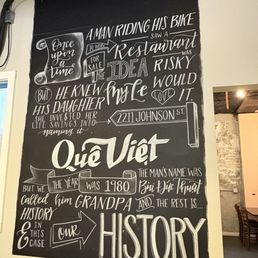 Once upon a time
A MAN RIDING HIS BIKE
SAW A
Restaurant
FOR SALE
THE IDEA WAS RISKY
BUT HE KNEW
HIS DAUGHTER
WOULD
LOVE IT.
SHE INVESTED HER
LIFE SAVINGS INTO
naming it
2211 JOHNSON ST.
Quê Việt
THE YEAR WAS 1980
THE MAN'S NAME WAS
BUT WE
called him GRANDPA
AND THE REST IS...
HISTORY
& IN THIS CASE
OUR
HISTORY